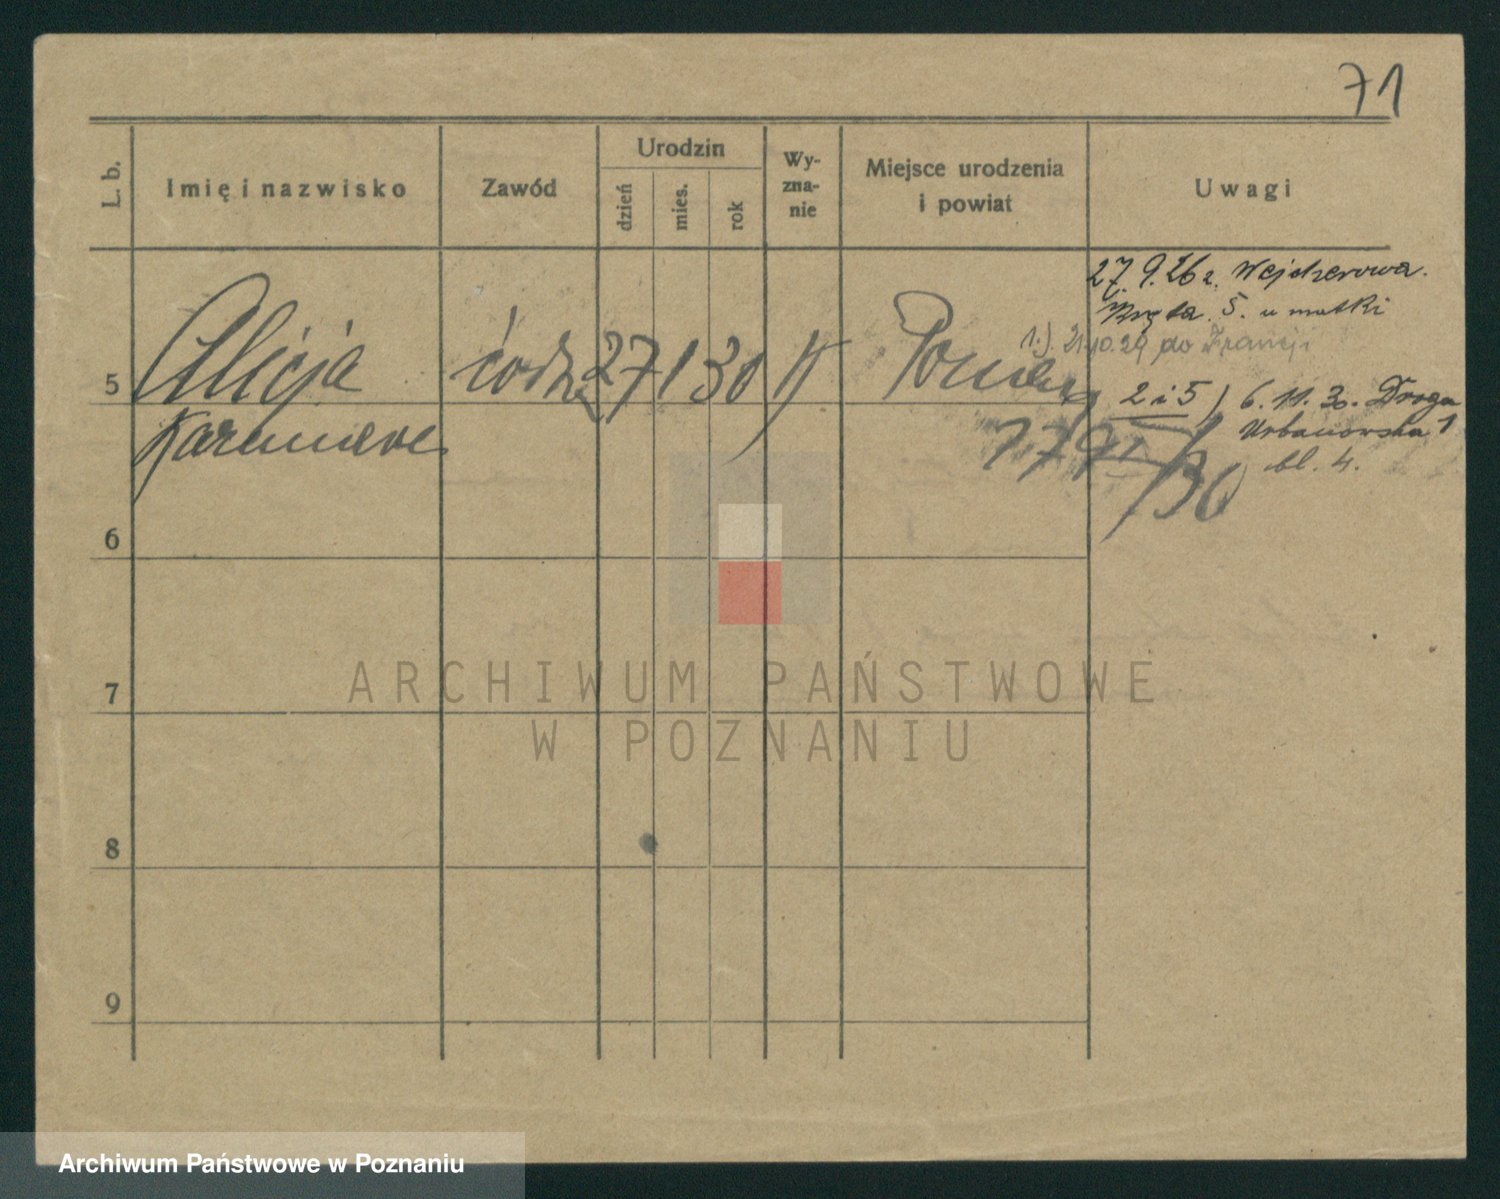 71
L. b.
Imię i nazwisko
Zawód
Urodzin
dzień
mies.
rok
Wy-
zna-
nie
Miejsce urodzenia
i powiat
Uwagi
27. 9. 26 r. Wejcherowa.
5. u matki
1.) 21.10.29 do Francji
5
Alicja
27 1 30
Poznań
2 i 5) 6. 11. 30. Droga
Urbanowska 1
bl. 4.
6
7
8
9
ARCHIWUM PAŃSTWOWE
W POZNANIU
Archiwum Państwowe w Poznaniu